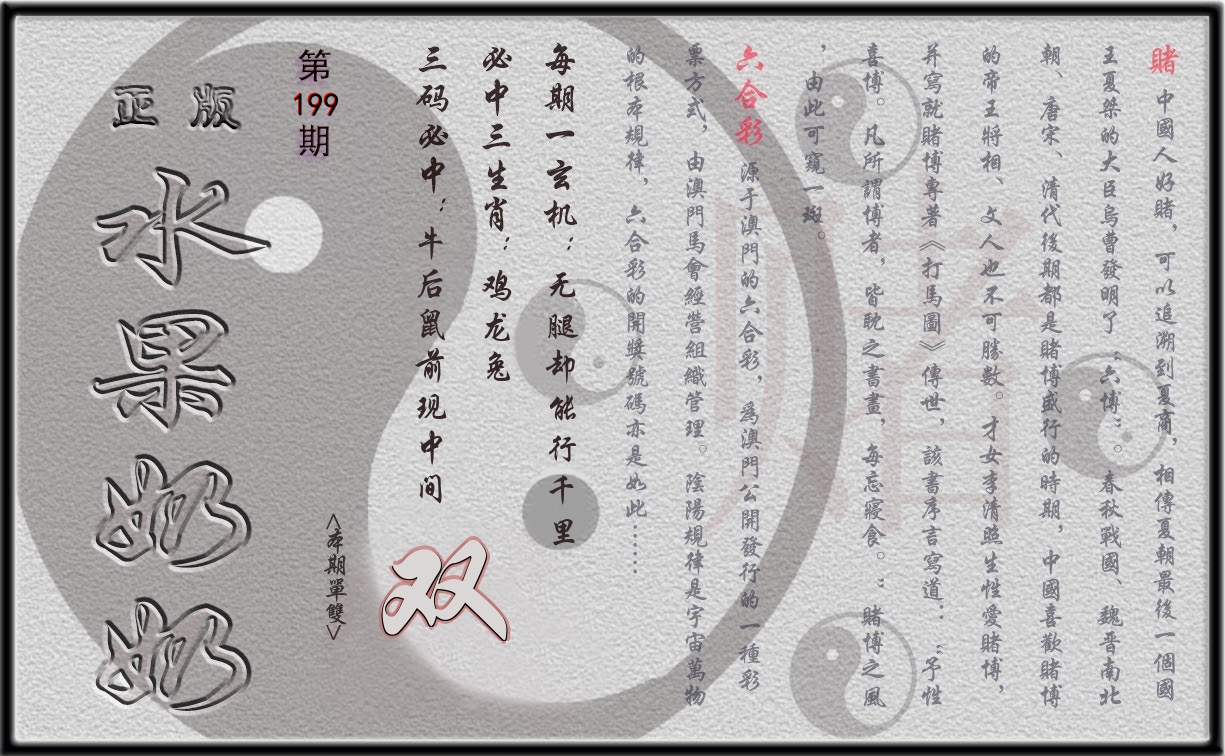 賭 中國人好賭，可以追溯到夏商，相傳夏朝最後一個國
王夏桀的大臣烏曹發明了“六博”。春秋戰國、魏晋南北
朝、唐宋、清代後期都是賭博盛行的時期，中國喜歡賭博
的帝王將相、文人也不可勝數。才女李清照生性愛賭博，
并寫就賭博專著《打馬圖》傳世，該書序言寫道：“予性
喜博。凡所謂博者，皆耽之書畫，每忘寢食。：賭博之風
，由此可窺一斑。
六合彩 源于澳門的六合彩，為澳門公開發行的一種彩
票方式，由澳門馬會經營組織管理。陰陽規律是宇宙萬物
的根本規律，六合彩的開獎號碼亦是如此……
賭
每期一玄机：无腿却能行千里
必中三生肖：鸡龙兔
三码必中：牛后鼠前现中间
双
<本期單雙>
第199期
正版
水果奶奶